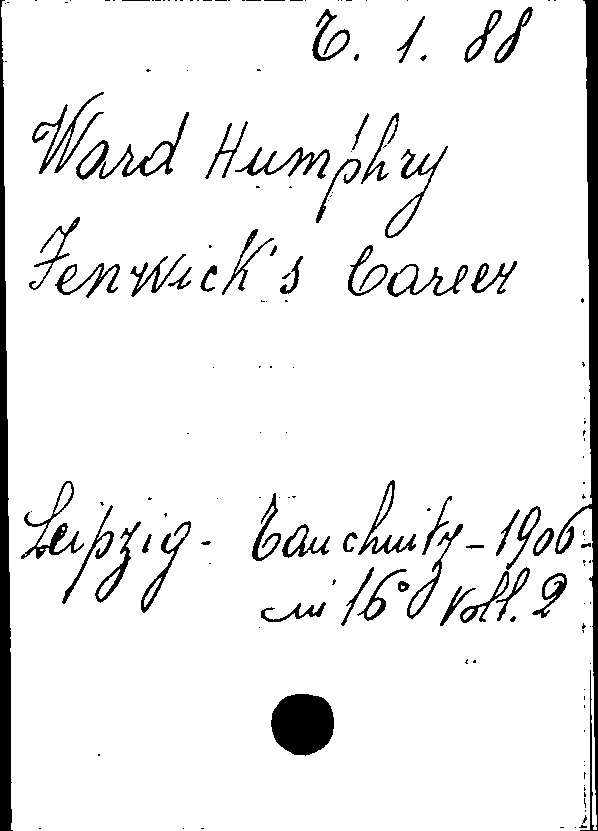 T. 1. 88
Ward Humphry
Fenwick's Career
Leipzig - Tauchnitz - 1906 -
in 16° Voll. 2